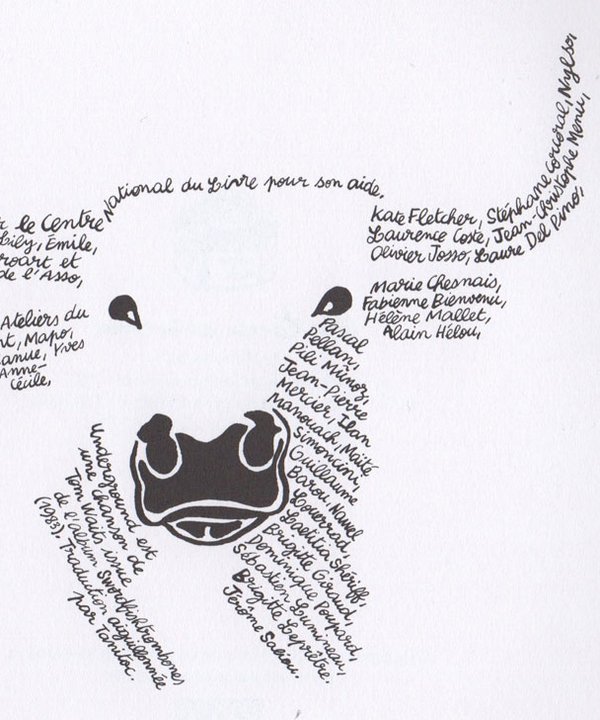 National du Livre pour son aide.
le Centre
Lily, Emile,
et
de l'Asso,
Ateliers du
Mapo,
Yves
Anne-
Cécile,
Kate Fletcher, Stéphane Nylso,
Laurence Coste, Jean-Christophe Menu,
Olivier Josso, Laure Del Pino,
Marie Chesnais,
Fabienne Bienvenu,
Hélène Mallet,
Alain Hélou,
Pascal
Pellan,
Pili Muñoz,
Jean-Pierre
Mercier, Jean
Manouach, Maïté
Simoncini,
Guillaume
Barou, Nawel
Louerrad,
Laetitia Sheriff,
Brigitte Giraud,
Dominique Poupard,
Sébastien Lumineau,
Brigitte
Jérôme Saliou.
Underground est
une chanson de
Tom Waits issue
de l'album Swordfishtrombones
(1983). Traduction aiguillonnée
par Tanitoc.